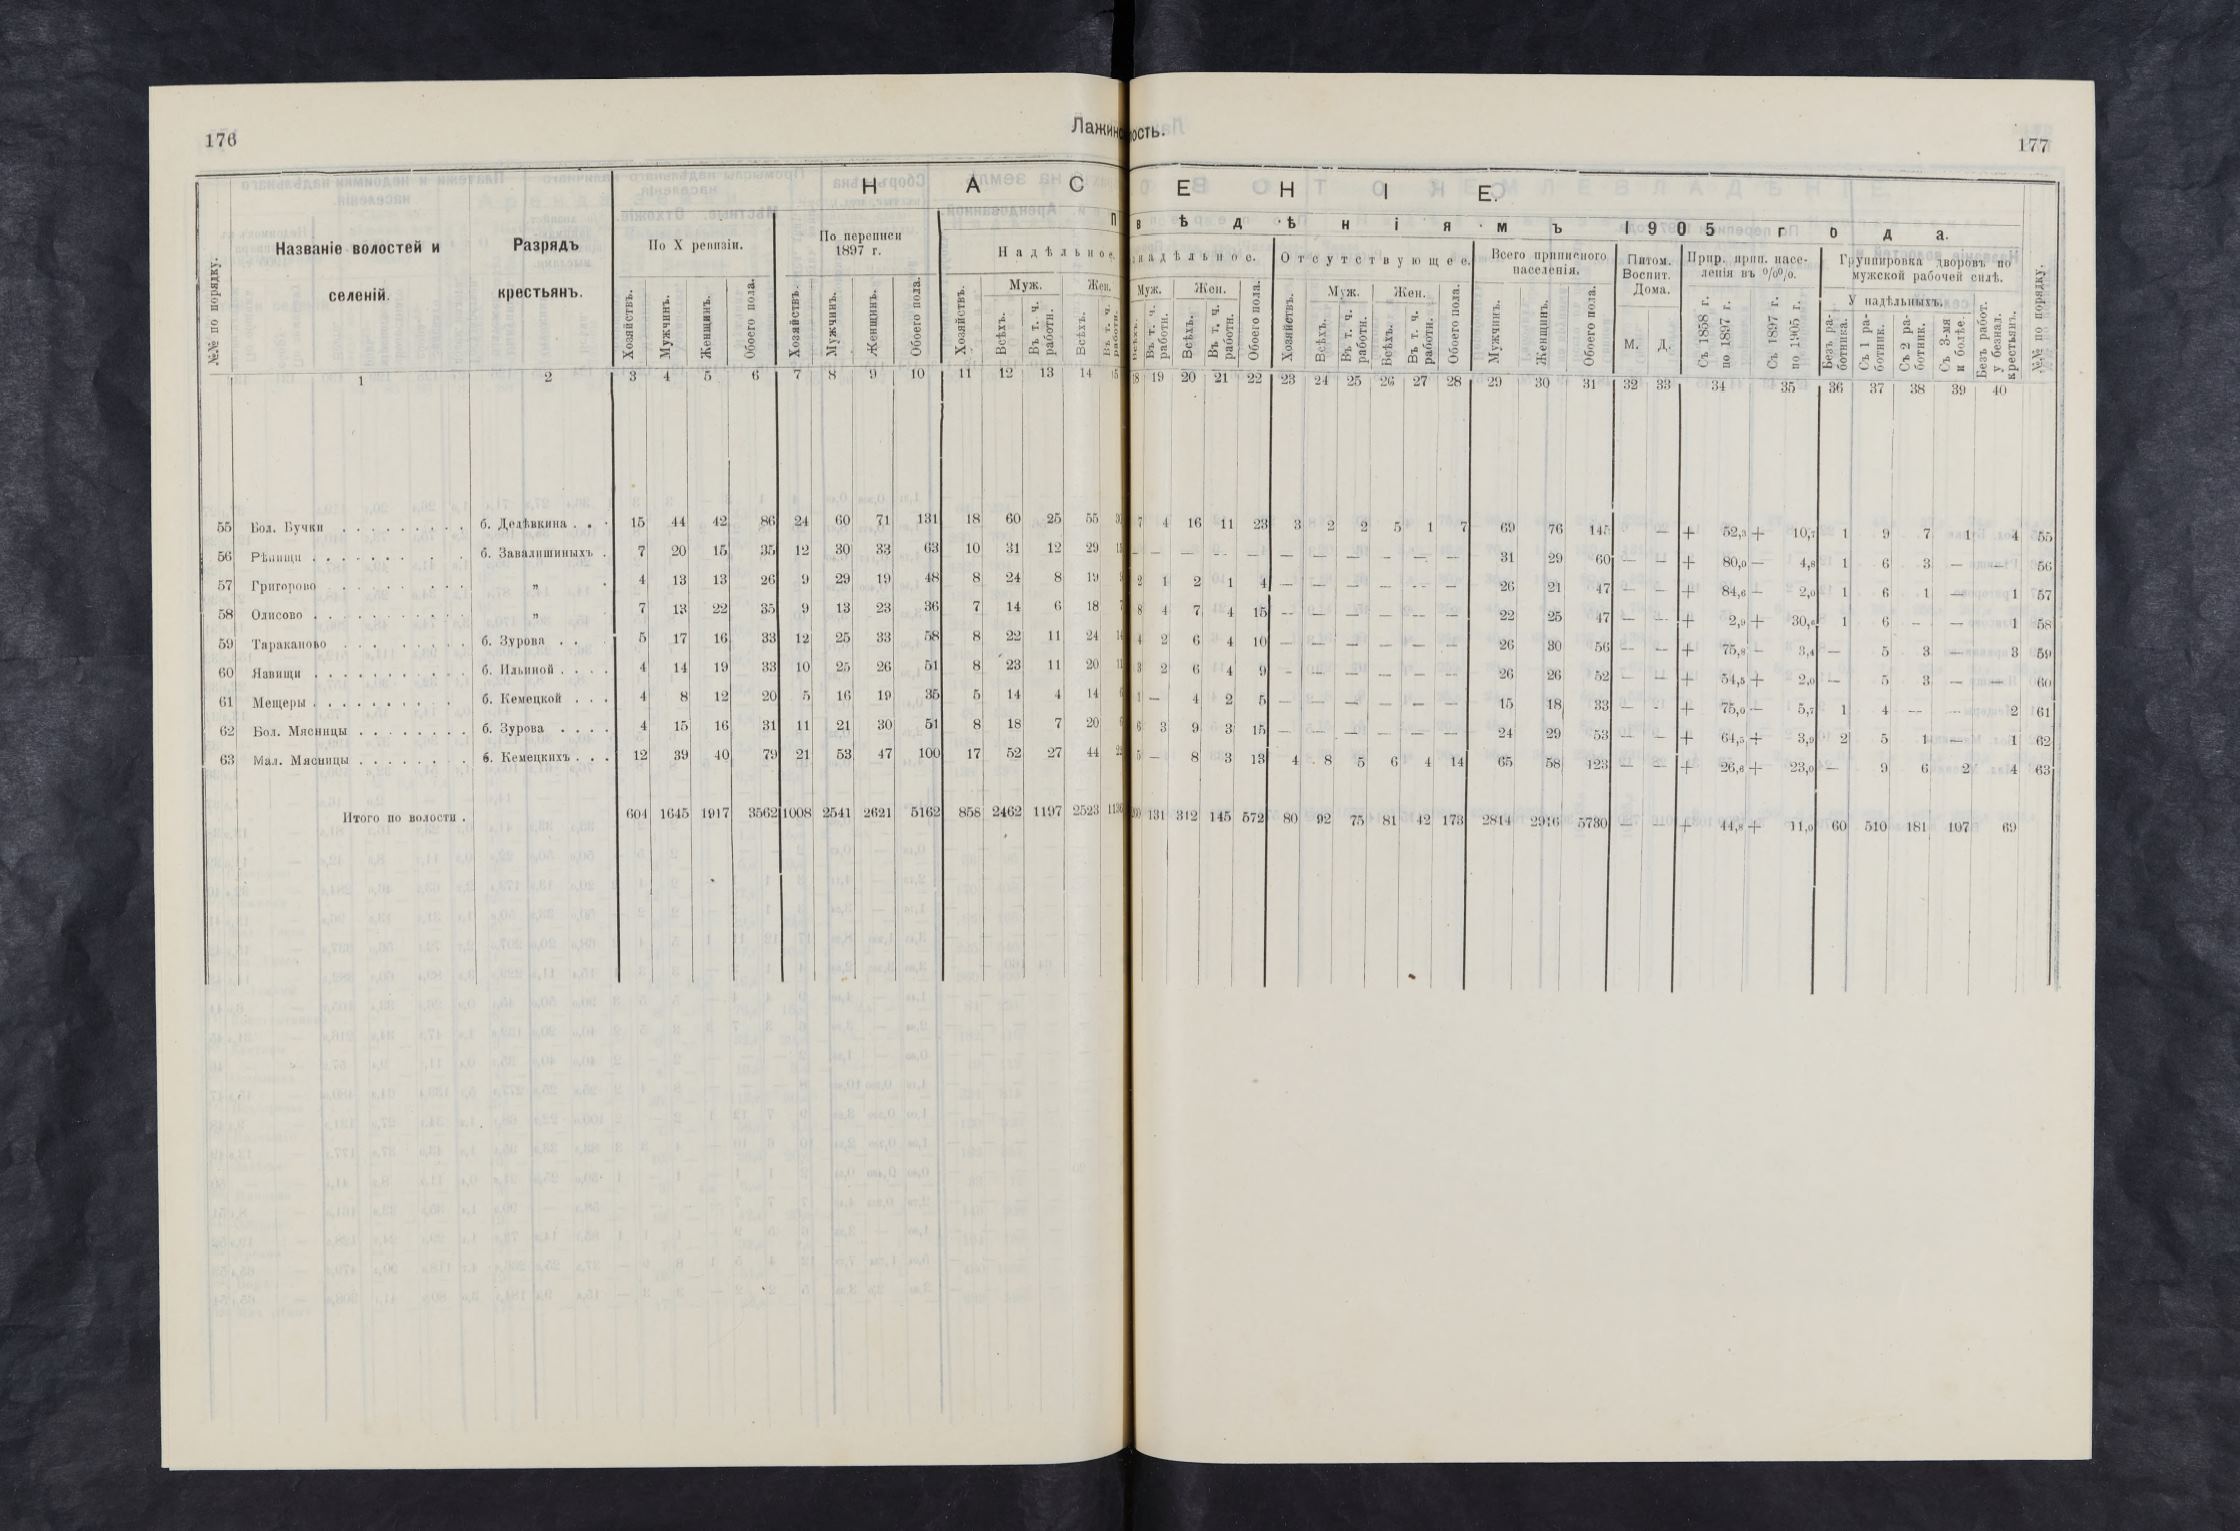 176
Лажинс
ость.
177
НАС
ЕНІЕ.
П
вѣдѣніямъ 1905 года.
№№ по порядку.
Названіе волостей и
селеній.
Разрядъ
крестьянъ.
По X ревизіи.
По переписи
1897 г.
Надѣльное.
надѣльное.
Отсутствующее.
Всего приписного
населенія.
Питом.
Воспит.
Дома.
Прир. прип. насе-
ленія въ %%.
Группировка дворовъ по
мужской рабочей силѣ.
Муж. Жен. Муж. Жен. Муж. Жен.
У надѣльныхъ.
Хозяйствъ. Мужчинъ. Женщинъ. Обоего пола. Хозяйствъ. Мужчинъ. Женщинъ. Обоего пола. Хозяйствъ. Всѣхъ. Въ т. ч. работн. Всѣхъ. Въ т. ч. работн.
Всѣхъ. Въ т. ч. работн. Всѣхъ. Въ т. ч. работн. Обоего пола. Хозяйствъ. Всѣхъ. Въ т. ч. работн. Всѣхъ. Въ т. ч. работн. Обоего пола. Мужчинъ. Женщинъ. Обоего пола. М. Д. Съ 1858 г. по 1897 г. Съ 1897 г. по 1905 г. Безъ ра-ботника. Съ 1 ра-ботник. Съ 2 ра-ботник. Съ 3-мя и болѣе. Безъ работ. у безнал. крестьянъ. №№ по порядку.
1 2 3 4 5 6 7 8 9 10 11 12 13 14 15 18 19 20 21 22 23 24 25 26 27 28 29 30 31 32 33 34 35 36 37 38 39 40
55 Бол. Бучки . . . . . . . . . б. Дедѣвкина . . . 15 44 42 86 24 60 71 131 18 60 25 55 7 4 16 11 23 3 2 2 5 1 7 69 76 145 — + 52,3 + 10,7 1 9 7 1 4 55
56 Рѣпищи . . . . . . . . . б. Завалишиныхъ . 7 20 15 35 12 30 33 63 10 31 12 29 — — — — — — — — — — — 31 29 60 — — + 80,0 — 4,8 1 6 3 — — 56
57 Григорово . . . . . . . . . „ . 4 13 13 26 9 29 19 48 8 24 8 19 2 1 2 1 4 — — — — — — 26 21 47 — — + 84,6 — 2,0 1 6 1 — 1 57
58 Олисово . . . . . . . . . . „ 7 13 22 35 9 13 23 36 7 14 6 18 8 4 7 4 15 — — — — — — 22 25 47 — — + 2,9 + 30,6 1 6 — — 1 58
59 Тараканово . . . . . . . . . б. Зурова . . 5 17 16 33 12 25 33 58 8 22 11 24 4 2 6 4 10 — — — — — — 26 30 56 — — + 75,8 — 3,4 — 5 3 — 3 59
60 Явищи . . . . . . . . . . . б. Ильиной . . . . 4 14 19 33 10 25 26 51 8 23 11 20 3 2 6 4 9 — — — — — — 26 26 52 — — + 54,5 + 2,0 — 5 3 — — 60
61 Мещеры . . . . . . . . . б. Кемецкой . . . 4 8 12 20 5 16 19 35 5 14 4 14 1 — 4 2 5 — — — — — — 15 18 33 — — + 75,0 — 5,7 1 4 — — 2 61
62 Бол. Мясницы . . . . . . . . б. Зурова . . . . 4 15 16 31 11 21 30 51 8 18 7 20 6 3 9 3 15 — — — — — — 24 29 53 — — + 64,5 + 3,9 2 5 1 — 1 62
63 Мал. Мясницы . . . . . . . . б. Кемецкихъ . . . 12 39 40 79 21 53 47 100 17 52 27 44 5 — 8 3 13 4 8 5 6 4 14 65 58 123 — — + 26,6 + 23,0 — 9 6 2 4 63
Итого по волости . 604 1645 1917 3562 1008 2541 2621 5162 858 2462 1197 2523 1136 131 312 145 572 80 92 75 81 42 173 2814 2916 5730 — — + 44,8 + 11,0 60 510 181 107 69